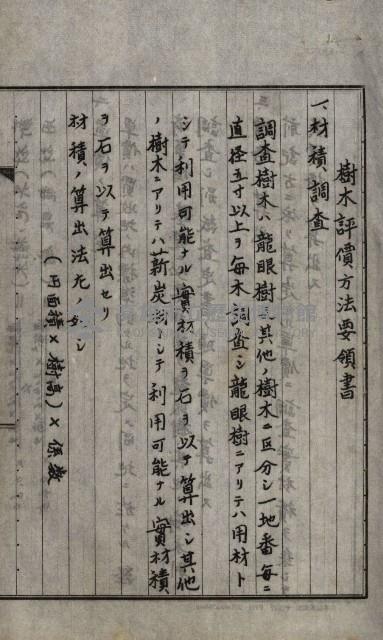 樹木評價方法要領書
一、材積調査
調査樹木ハ龍眼樹、其他ノ樹木ニ区分シ一地番毎ニ
直径五寸以上ヲ毎木調査シ龍眼樹ニアリテハ用材ト
シテ利用可能ナル實材積ヲ石ヲ以テ算出シ其他
ノ樹木ニアリテハ薪炭材トシテ利用可能ナル實材積
ヲ石ヲ以テ算出セリ
材積ノ算出法左ノ如シ
(円面積×樹高)×係数